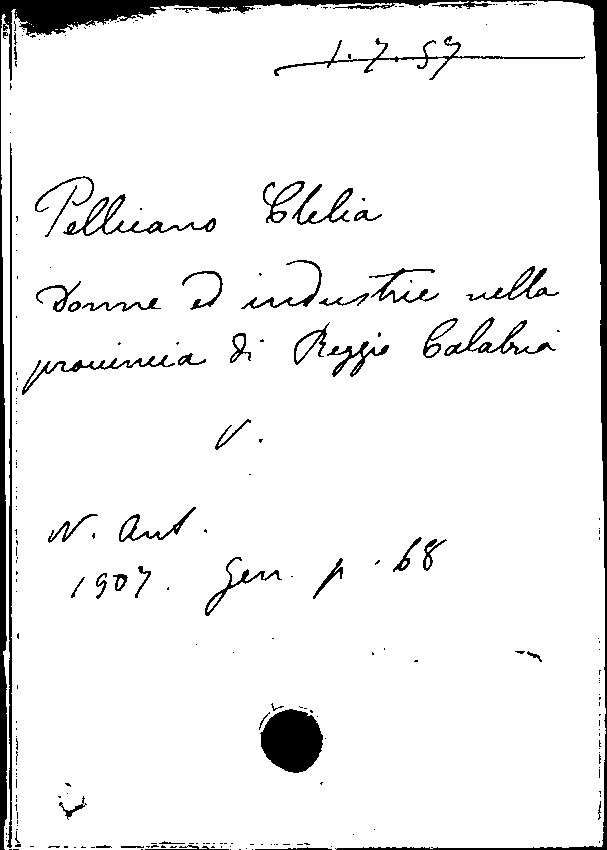 1.7.57
Pellicano Clelia
Donne ed industrie nella
provincia di Reggio Calabria
V.
N. Ant.
1907. Gen. p. 68